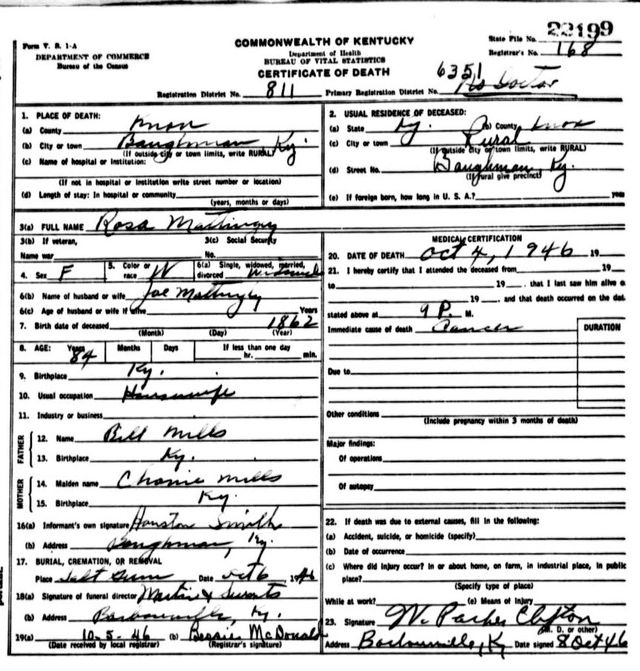 22199
Form V. S. 1-A
DEPARTMENT OF COMMERCE
Bureau of the Census
COMMONWEALTH OF KENTUCKY
Department of Health
BUREAU OF VITAL STATISTICS
CERTIFICATE OF DEATH
State File No.
Registrar's No. 168
Registration District No. 811
Primary Registration District No. 6351
No Doctor
1. PLACE OF DEATH:
(a) County Knox
(b) City or town Baughman Ky.
(If outside city or town limits, write RURAL)
(c) Name of hospital or institution:
(If not in hospital or institution write street number or location)
(d) Length of stay: In hospital or community
(years, months or days)
2. USUAL RESIDENCE OF DECEASED:
(a) State Ky. (b) County Knox
(c) City or town Rural
(If outside city or town limits, write RURAL)
(d) Street No. Baughman Ky.
(If rural give precinct)
(e) If foreign born, how long in U. S. A.? years
3(a) FULL NAME Rosa Mattingly
3(b) If veteran,
Name war
3(c) Social Security
No.
4. Sex F
5. Color or race W
6(a) Single, widowed, married, divorced widowed
6(b) Name of husband or wife Joe Mattingly
6(c) Age of husband or wife if alive Years
7. Birth date of deceased 1862
(Month) (Day) (Year)
8. AGE: Years 84 Months Days If less than one day hr. min.
9. Birthplace Ky.
10. Usual occupation Housewife
11. Industry or business
FATHER
12. Name Bill Mills
13. Birthplace Ky.
MOTHER
14. Maiden name Mills
15. Birthplace Ky.
16(a) Informant's own signature Houston Smith
(b) Address Baughman, Ky.
17. BURIAL, CREMATION, OR REMOVAL
Place Salt Gum Date Oct 6 1946
18(a) Signature of funeral director Martin &
(b) Address Barbourville, Ky.
19(a) 10-5-46 (b) Bessie McDonald
(Date received by local registrar) (Registrar's signature)
MEDICAL CERTIFICATION
20. DATE OF DEATH Oct 4, 1946 19
21. I hereby certify that I attended the deceased from 19
to 19 , that I last saw him alive o
19 , and that death occurred on the dat
stated above at 9 P. M.
Immediate cause of death Cancer
DURATION
Due to
Other conditions
(Include pregnancy within 3 months of death)
Major findings:
Of operations
Of autopsy
22. If death was due to external causes, fill in the following:
(a) Accident, suicide, or homicide (specify)
(b) Date of occurrence
(c) Where did injury occur? In or about home, on farm, in industrial place, in public
place?
(Specify type of place)
While at work? (e) Means of Injury
23. Signature W. Parker Clifton
(M. D. or other)
Address Barbourville, Ky Date signed 8 Oct 46